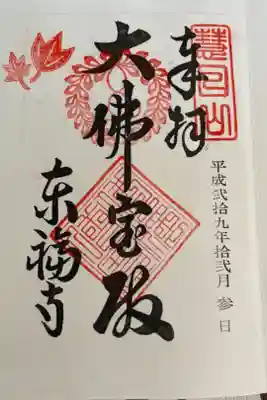 慧日山
奉拝
平成弐拾九年拾弐月参日
大佛宝殿
東福寺